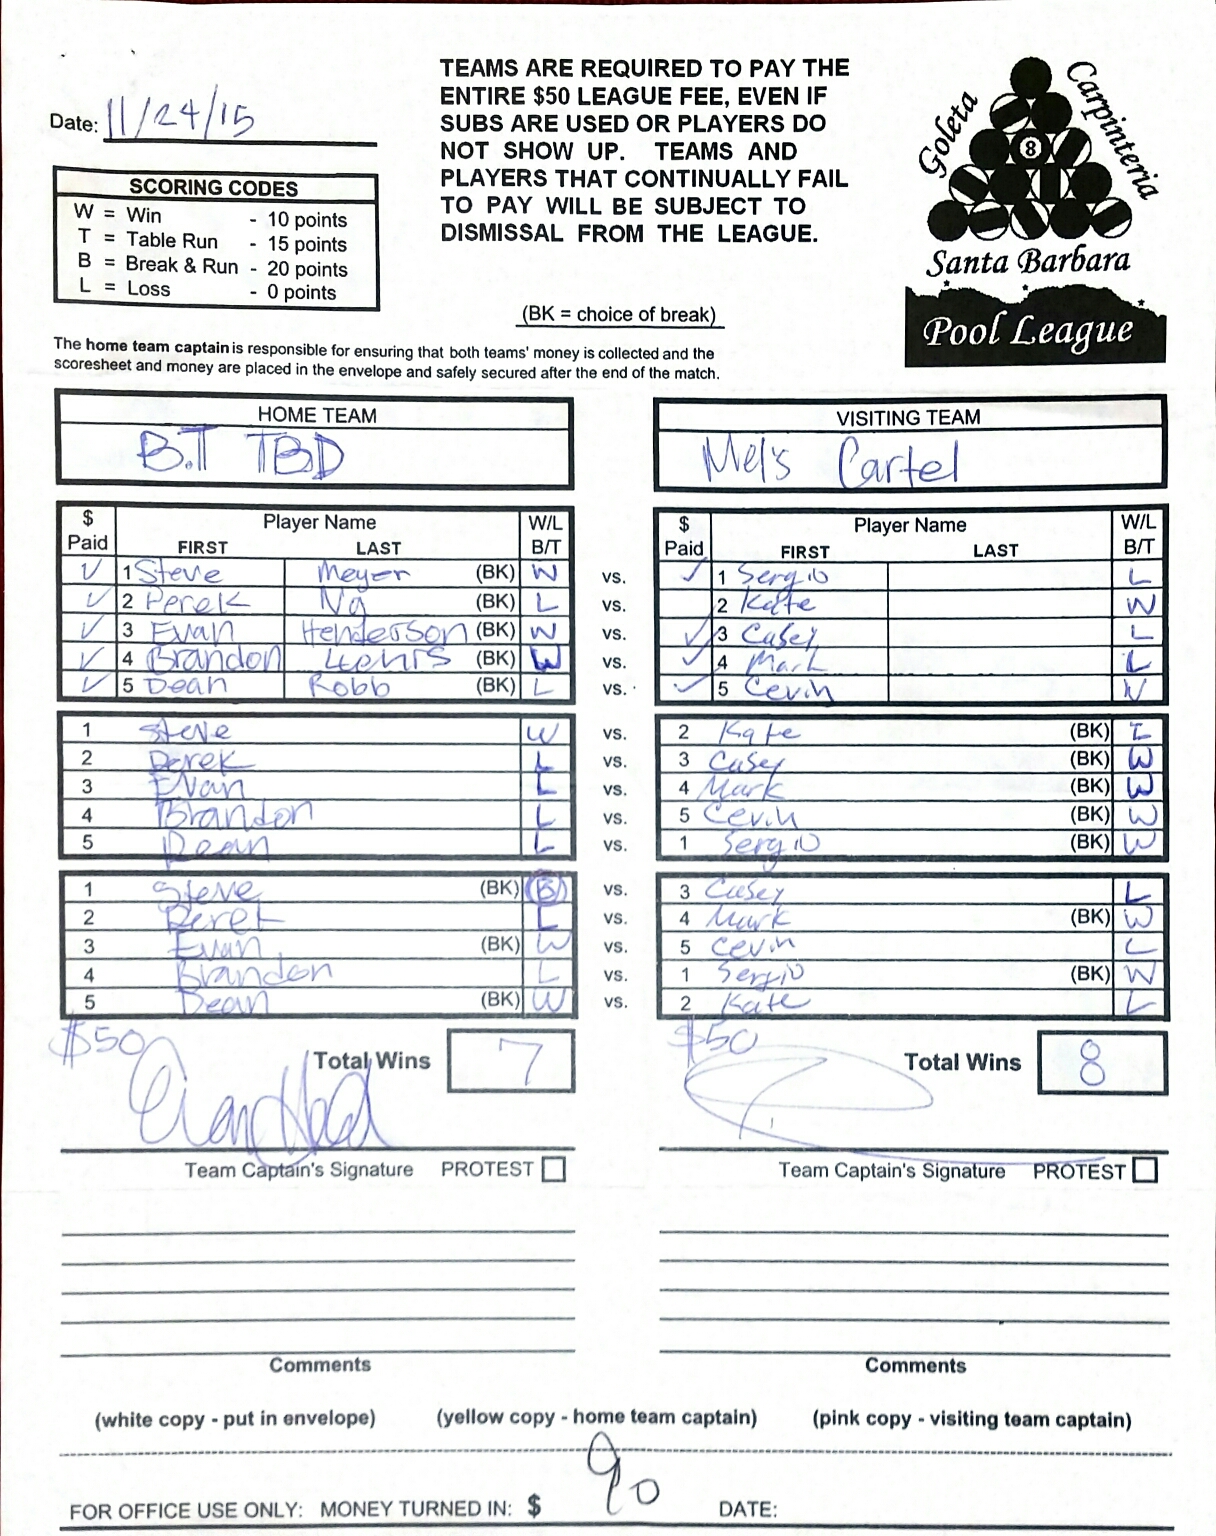 Date: 11/24/15
TEAMS ARE REQUIRED TO PAY THE
ENTIRE $50 LEAGUE FEE, EVEN IF
SUBS ARE USED OR PLAYERS DO
NOT SHOW UP. TEAMS AND
PLAYERS THAT CONTINUALLY FAIL
TO PAY WILL BE SUBJECT TO
DISMISSAL FROM THE LEAGUE.
Goleta
Carpinteria
8
Santa Barbara
Pool League
SCORING CODES
W = Win - 10 points
T = Table Run - 15 points
B = Break & Run - 20 points
L = Loss - 0 points
(BK = choice of break)
The home team captain is responsible for ensuring that both teams' money is collected and the
scoresheet and money are placed in the envelope and safely secured after the end of the match.
HOME TEAM VISITING TEAM
B.T TBD Mel's Cartel
$ Paid Player Name W/L B/T $ Paid Player Name W/L B/T
FIRST LAST FIRST LAST
✓ 1 Steve Meyer (BK) W vs. ✓ 1 Sergio L
✓ 2 Derek Ng (BK) L vs. 2 Kate W
✓ 3 Evan Henderson (BK) W vs. ✓ 3 Casey L
✓ 4 Brandon (BK) W vs. ✓ 4 Mark L
✓ 5 Dean Robb (BK) L vs. ✓ 5 Cevin W
1 Steve W vs. 2 Kate (BK) L
2 Derek L vs. 3 Casey (BK) W
3 Evan L vs. 4 Mark (BK) W
4 Brandon L vs. 5 Cevin (BK) W
5 Dean L vs. 1 Sergio (BK) W
1 Steve (BK) B vs. 3 Casey L
2 Derek L vs. 4 Mark (BK) W
3 Evan (BK) W vs. 5 Cevin L
4 Brandon L vs. 1 Sergio (BK) W
5 Dean (BK) W vs. 2 Kate L
$50 Total Wins 7 $50 Total Wins 8
Team Captain's Signature PROTEST Team Captain's Signature PROTEST
Comments Comments
(white copy - put in envelope) (yellow copy - home team captain) (pink copy - visiting team captain)
FOR OFFICE USE ONLY: MONEY TURNED IN: $ 90 DATE: